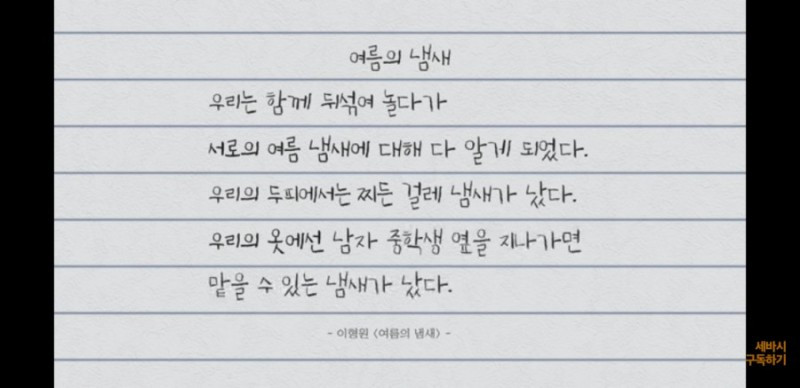 여름의 냄새
우리는 함께 뒤섞여 놀다가
서로의 여름 냄새에 대해 다 알게 되었다.
우리의 두피에서는 찌든 걸레 냄새가 났다.
우리의 옷에선 남자 중학생 옆을 지나가면
맡을 수 있는 냄새가 났다.
- 이형원 <여름의 냄새> -
세바시
구독하기